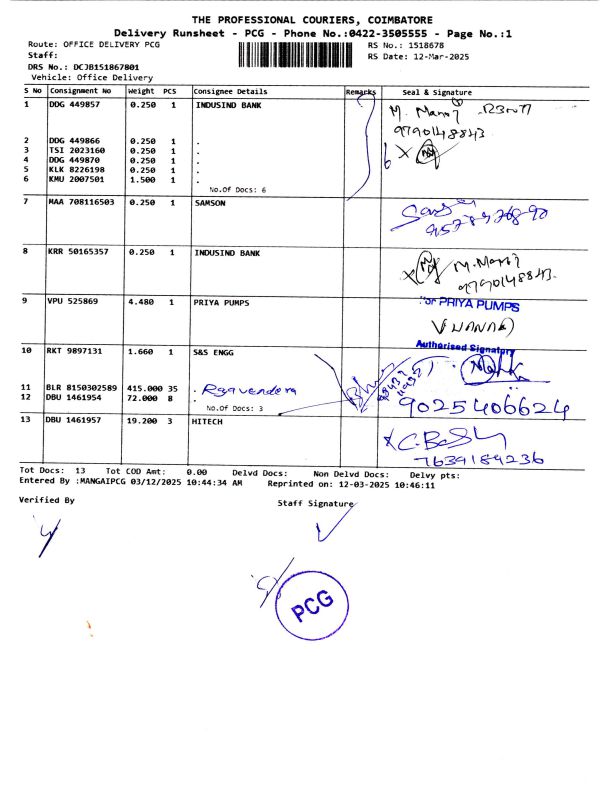 THE PROFESSIONAL COURIERS, COIMBATORE
Delivery Runsheet - PCG - Phone No.:0422-3505555 - Page No.:1
Route: OFFICE DELIVERY PCG
RS No.: 1518678
Staff:
RS Date: 12-Mar-2025
DRS No.: DCJB151867801
Vehicle: Office Delivery
S No Consignment No Weight PCS Consignee Details Remarks Seal & Signature
1 DDG 449857 0.250 1 INDUSIND BANK M. Manoj
9790148843
2 DDG 449866 0.250 1 .
3 TSI 2023160 0.250 1 .
4 DDG 449870 0.250 1 .
5 KLK 8226198 0.250 1 .
6 KMU 2007501 1.500 1 .
6 X
No.Of Docs: 6
7 MAA 708116503 0.250 1 SAMSON
9578976890
8 KRR 50165357 0.250 1 INDUSIND BANK X M.Manoj
9790148843.
9 VPU 525869 4.480 1 PRIYA PUMPS For PRIYA PUMPS
Authorised Signatory
10 RKT 9897131 1.660 1 S&S ENGG
11 BLR 8150302589 415.000 35 . Ragavendera
12 DBU 1461954 72.000 8 . 9025406624
No.Of Docs: 3
13 DBU 1461957 19.200 3 HITECH
7639189236
Tot Docs: 13 Tot COD Amt: 0.00 Delvd Docs: Non Delvd Docs: Delvy pts:
Entered By :MANGAIPCG 03/12/2025 10:44:34 AM Reprinted on: 12-03-2025 10:46:11
Verified By
Staff Signature
PCG